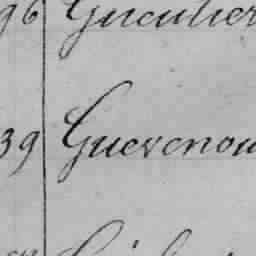 96 Gueulier
39 Guerenou